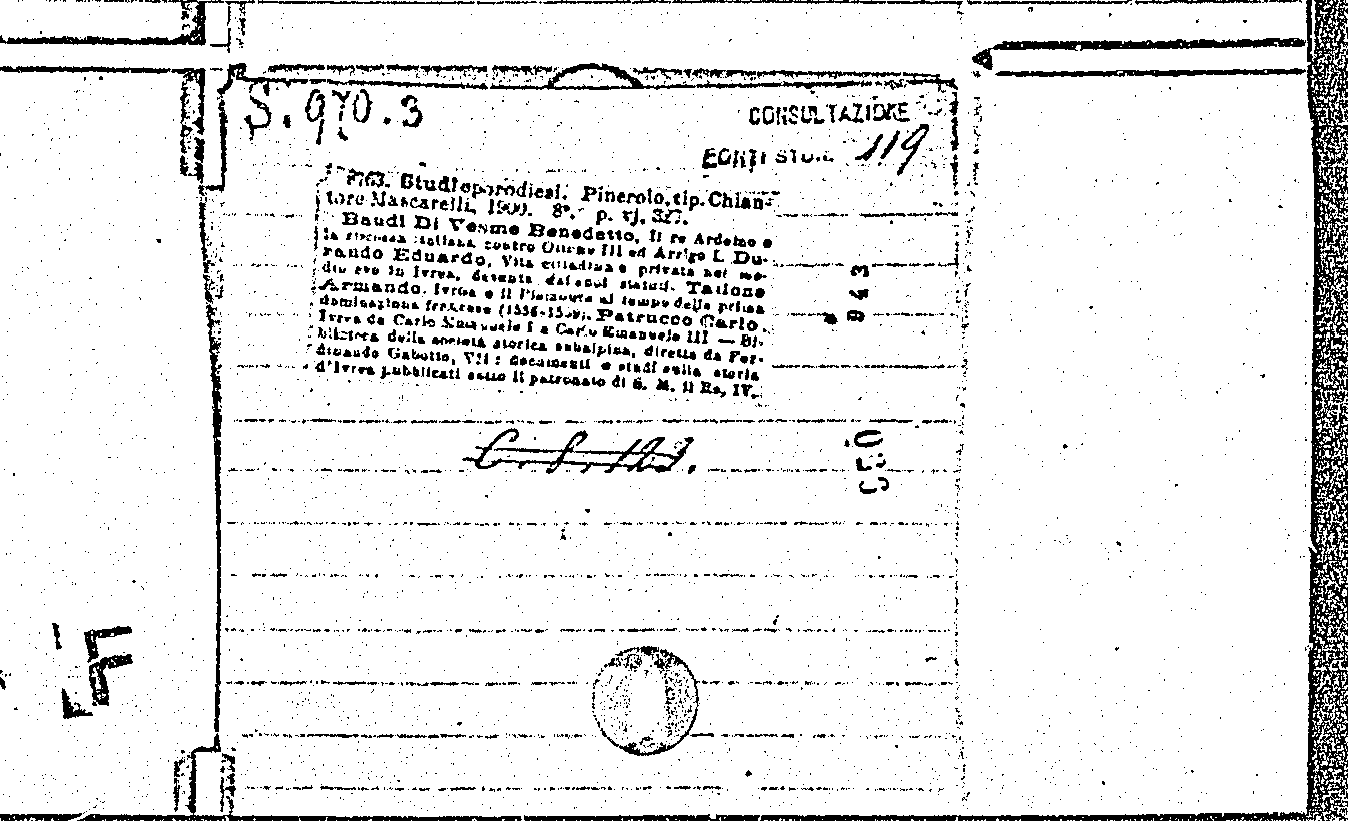 S. 970.3
CONSULTAZIONE
FONTI STOR. 119
Studi eporediesi. Pinerolo, tip. Chian-
tore Mascarelli, 1900. 8°. p. vj, 
Baudi Di Vesme Benedetto, Il re Ardoino e
la riscossa italiana contro Ottone III ed Arrigo I. Du-
rando Eduardo, Vita cittadina e privata nel me-
dio evo in Ivrea, desunta dai suoi statuti. Tallone
Armando, Ivrea e il Piemonte al tempo della prima
dominazione francese (1536-1559). Patrucco Carlo,
Ivrea da Carlo Emanuele I a Carlo Emanuele III — Bi-
blioteca della società storica subalpina, diretta da Fer-
dinando Gabotto, VII: documenti e studi sulla storia
d'Ivrea pubblicati sotto il patronato di S. M. il Re, IV.
943